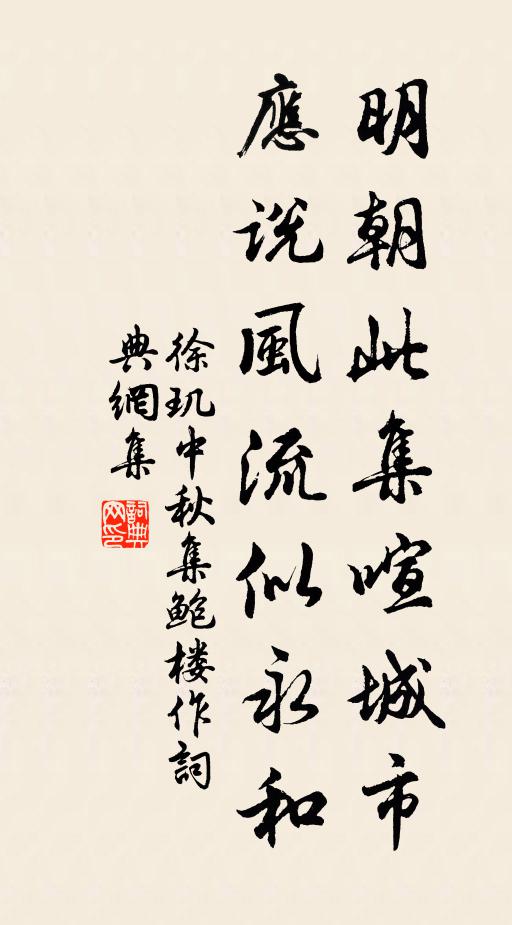 明朝此集喧城市
應説風流似永和
徐玑中秋集鲍楼作詞
典網集
詞典网印